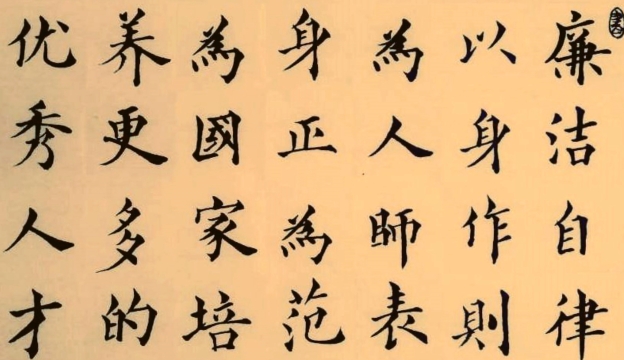 廉洁自律
以身作則
為人師表
身正為范
為國家培
养更多的
优秀人才